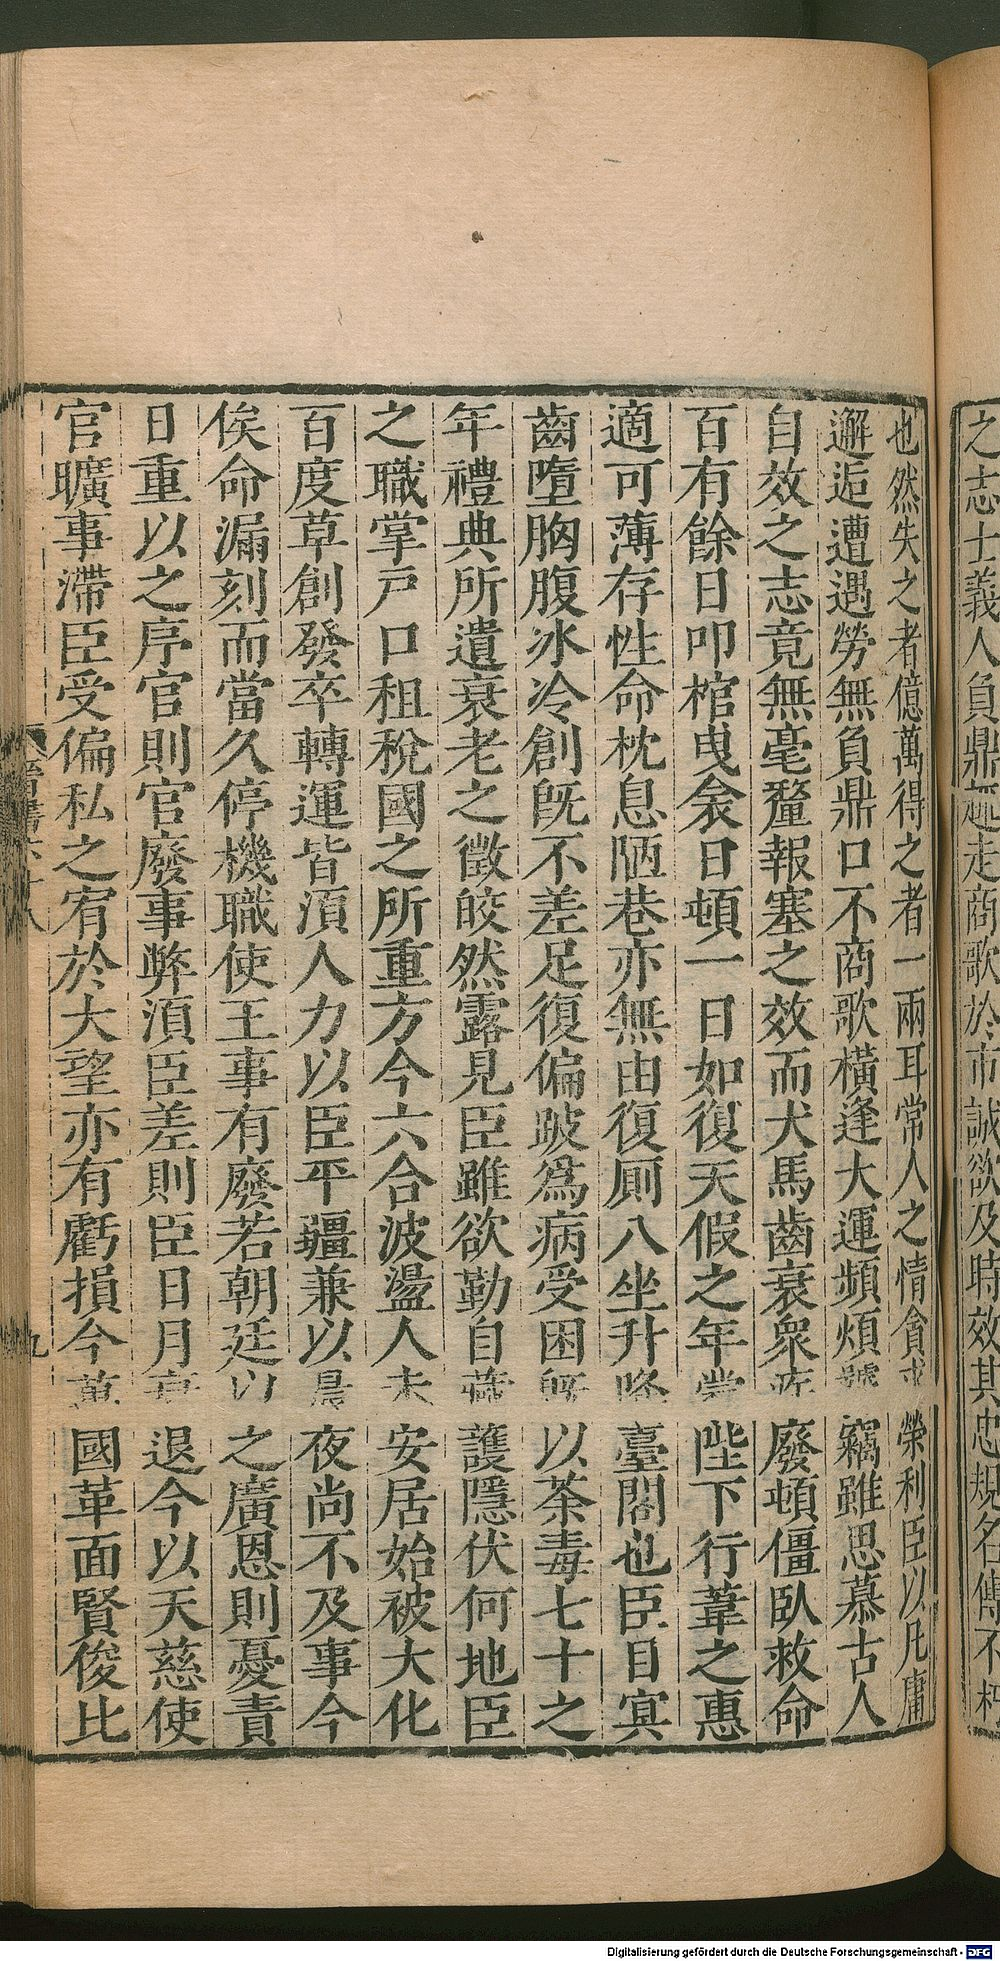 之志士義人負鼎趣走商歌於市誠欲及時效其忠規名傳不朽
也然失之者億萬得之者一兩耳常人之情貪求榮利臣以凡庸
邂逅遭遇勞無負鼎口不商歌橫逢大運頻煩饕竊雖思慕古人
自效之志竟無毫釐報塞之效而犬馬齒衰衆疾廢頓僵臥救命
百有餘日叩棺曳衾日頓一日如復天假之年蒙陛下行葦之惠
適可薄存性命枕息陋巷亦無由復廁八坐升降臺閣也臣目冥
齒墮胸腹冰冷創既不差足復偏跛爲病受困既以荼毒七十之
年禮典所遺衰老之徵皎然露見臣雖欲勒自藏護隱伏何地臣
之職掌戸口租稅國之所重方今六合波盪人未安居始被大化
百度草創發卒轉運皆須人力以臣平疆兼以晨夜尚不及事今
俟命漏刻而當久停機職使王事有廢若朝廷以之廣恩則憂責
日重以之序官則官廢事弊須臣差則臣日月衰退今以天慈使
官曠事滯臣受偏私之宥於大望亦有虧損今萬國革面賢俊比
晉書六十八
九
Digitalisierung gefördert durch die Deutsche Forschungsgemeinschaft - DFG